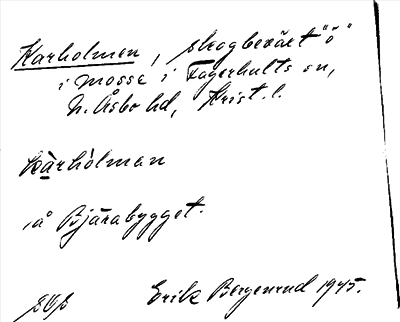 Karholmen, skogbeväxt "ö"
i mosse i Fagerhults sn,
N. Åsbo hd, Krist. l.
kàrhòlman
i å Bjärabygget.
Erik Bergenrud 1945.